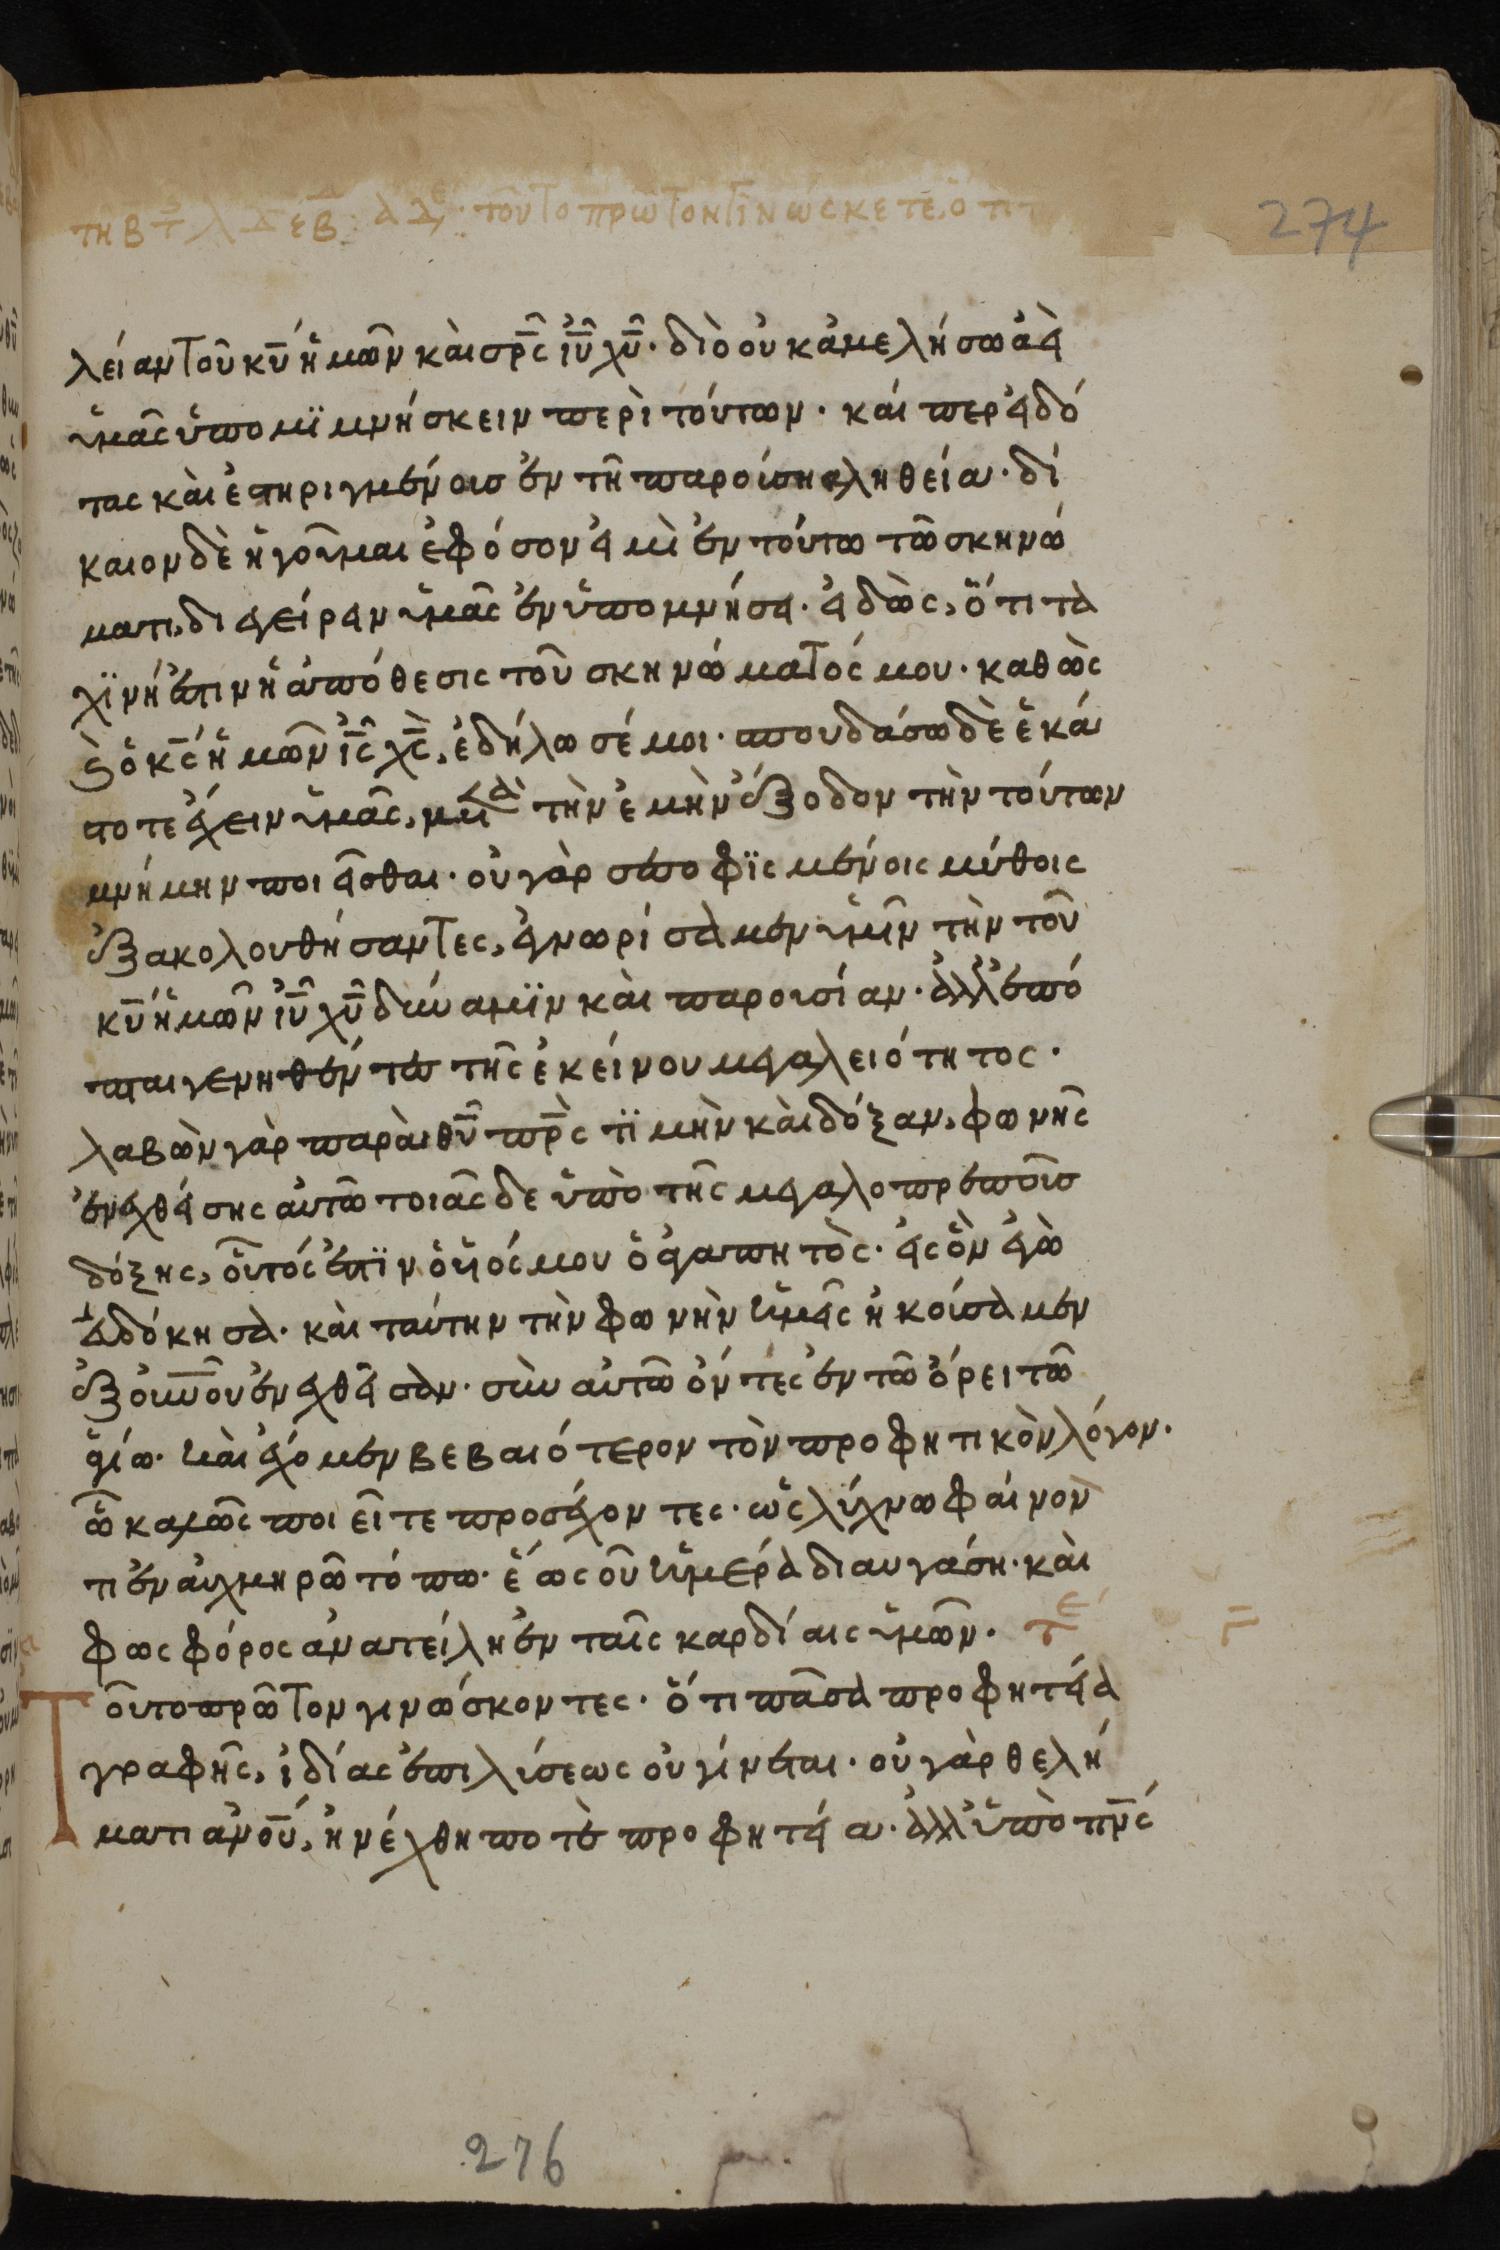 τη β τ λ δ εβ δ. αδε. τοῦτο πρῶτον γινώσκετε, ὅτι
274
λείαν τοῦ κῡ ἡμῶν καὶ σρ̄ς ἰῡ χῡ· διὸ οὐκ ἀμελήσω ἀεὶ
ὑμᾶς ὑπομϊμνήσκειν περὶ τούτων· καί περ εἰδό
τας καὶ ἐστηριγμένοις ἐν τῆ παρούση ἀληθεία· δί
καιον δὲ ἡγοῦμαι ἐφόσον εἰμὶ ἐν τούτω τῶ σκηνώ
ματι, διεγείρειν ὑμᾶς ἐν ὑπομνήσει· εἰδὼς, ὅτι τα
χϊνή ἐστιν ἡ ἀπόθεσις τοῦ σκηνώματός μου· καθὼς
καὶ ὁ κ̄ς ἡμῶν ῑς χ̄ς, ἐδήλωσέ μοι· σπουδάσω δὲ ἑκά
στοτε ἔχειν ὑμᾶς, μετὰ τὴν ἐμὴν ἔξοδον τὴν τούτων
μνήμην ποιεῖσθαι· οὐ γὰρ σεσοφϊσμένοις μύθοις
ἐξακολουθήσαντες, ἐγνωρίσαμεν ὑμῖν τὴν τοῦ
κῡ ἡμῶν ἰῡ χῡ δύναμϊν καὶ παρουσίαν· ἀλλ' ἐπό
πται γενηθέντες τῆς ἐκείνου μεγαλειότητος·
λαβὼν γὰρ παρὰ θῡ πρ̄ς τϊμὴν καὶ δόξαν, φωνῆς
ἐνεχθείσης αὐτῶ τοιᾶς δε ὑπὸ τῆς μεγαλοπρεποῦς
δόξης, οὗτός ἐστϊν ὁ ὑιός μου ὁ ἀγαπητὸς· εἰς ὃν ἐγὼ
εὐδόκησα· καὶ ταύτην τὴν φωνὴν ἡμεῖς ἠκούσαμεν
ἐξ οὐνοῦ ἐνεχθεῖσαν· σὺν αὐτῶ ὄντες ἐν τῶ ὄρει τῶ
ἁγίω· καὶ ἔχομεν βεβαιότερον τὸν προφητικὸν λόγον·
ὧ καλῶς ποιεῖτε προσέχοντες· ὡς λύχνω φαίνον
τι ἐν αὐχμηρῶ τόπω· ἕως οὗ ἡμέρα διαυγάση· καὶ
φωσφόρος ἀνατείλη ἐν ταῖς καρδίαις ὑμῶν· τε
Τοῦτο πρῶτον γινώσκοντες· ὅτι πᾶσα προφητεία
γραφῆς, ἰδίας ἐπιλύσεως οὐ γίνεται· οὐ γὰρ θελή
ματι ἀνοῡ, ἠνέχθη ποτὲ προφητεία· ἀλλ' ὑπὸ πν̄ς
276